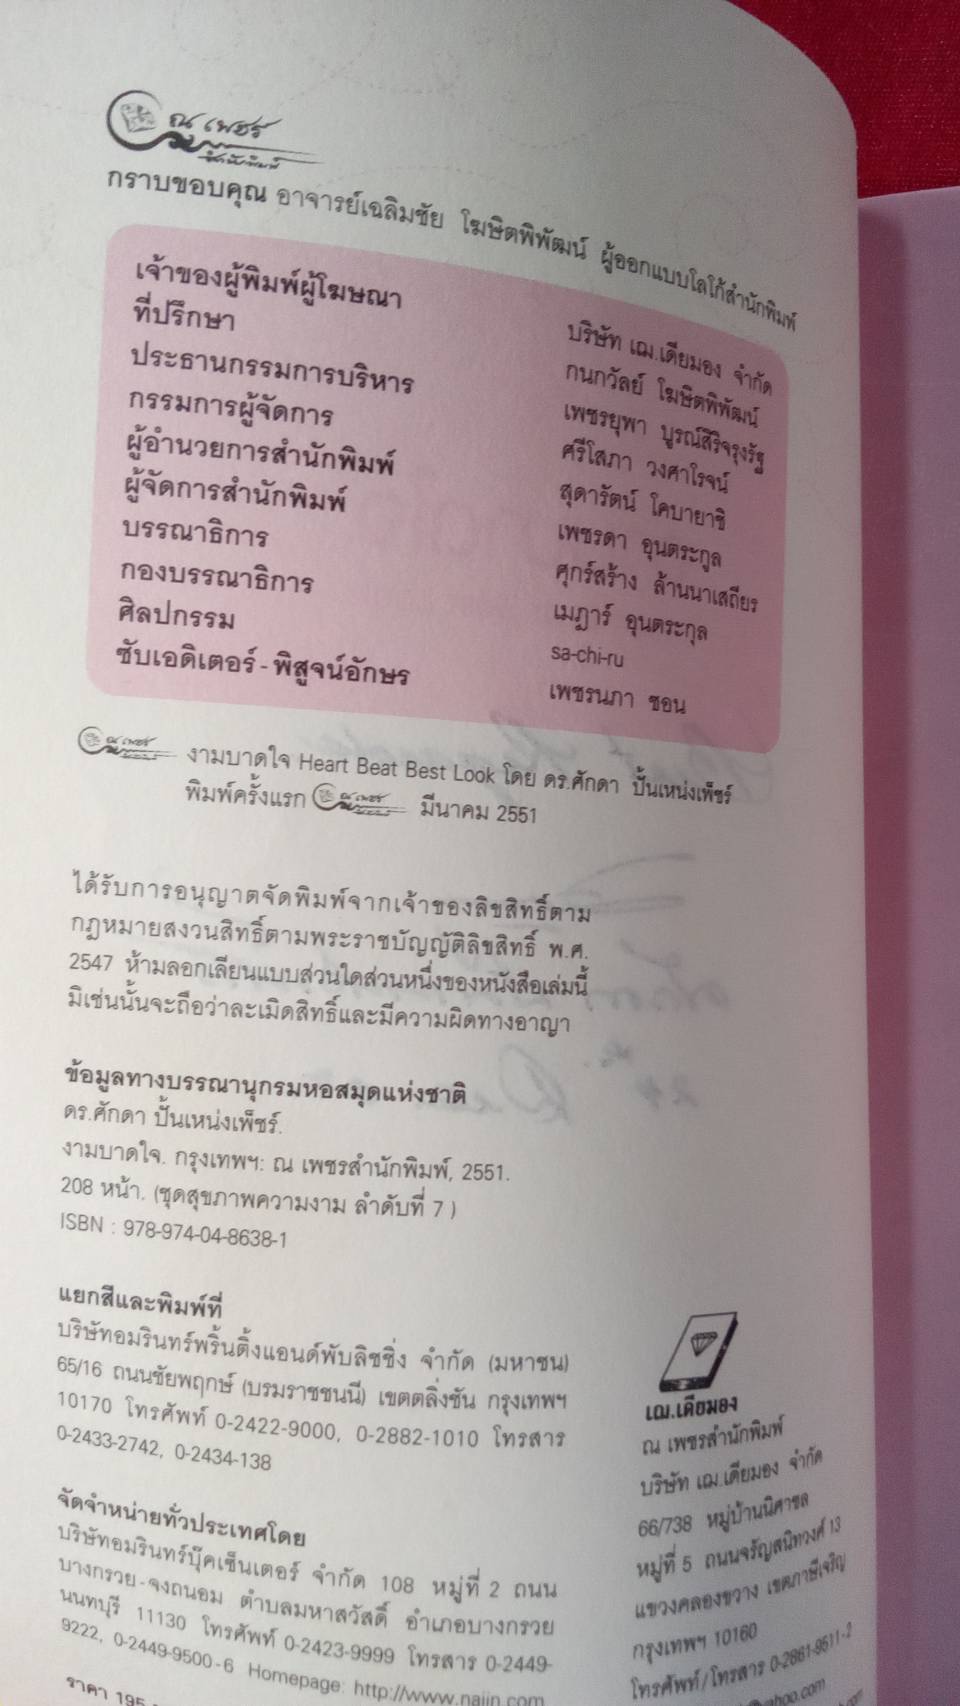 ณ เพชร
สำนักพิมพ์
กราบขอบคุณ อาจารย์เฉลิมชัย โฆษิตพิพัฒน์ ผู้ออกแบบโลโก้สำนักพิมพ์
เจ้าของผู้พิมพ์ผู้โฆษณา บริษัท เฌ.เดียมอง จำกัด
ที่ปรึกษา กนกวัลย์ โฆษิตพิพัฒน์
ประธานกรรมการบริหาร เพชรยุพา บูรณ์สิริจรุงรัฐ
กรรมการผู้จัดการ ศรีโสภา วงศาโรจน์
ผู้อำนวยการสำนักพิมพ์ สุดารัตน์ โคบายาชิ
ผู้จัดการสำนักพิมพ์ เพชรดา อุนตระกูล
บรรณาธิการ ศุกร์สร้าง ล้านนาเสถียร
กองบรรณาธิการ เมฎาร์ อุนตระกุล
ศิลปกรรม sa-chi-ru
ซับเอดิเตอร์ - พิสูจน์อักษร เพชรนภา ชอน
ณ เพชร งามบาดใจ Heart Beat Best Look โดย ดร.ศักดา ปั้นเหน่งเพ็ชร์
พิมพ์ครั้งแรก ณ เพชร มีนาคม 2551
ได้รับการอนุญาตจัดพิมพ์จากเจ้าของลิขสิทธิ์ตาม
กฎหมายสงวนสิทธิ์ตามพระราชบัญญัติลิขสิทธิ์ พ.ศ.
2547 ห้ามลอกเลียนแบบส่วนใดส่วนหนึ่งของหนังสือเล่มนี้
มิเช่นนั้นจะถือว่าละเมิดสิทธิ์และมีความผิดทางอาญา
ข้อมูลทางบรรณานุกรมหอสมุดแห่งชาติ
ดร.ศักดา ปั้นเหน่งเพ็ชร์.
งามบาดใจ. กรุงเทพฯ: ณ เพชรสำนักพิมพ์, 2551.
208 หน้า. (ชุดสุขภาพความงาม ลำดับที่ 7 )
ISBN : 978-974-04-8638-1
แยกสีและพิมพ์ที่
บริษัทอมรินทร์พริ้นติ้งแอนด์พับลิชชิ่ง จำกัด (มหาชน)
65/16 ถนนชัยพฤกษ์ (บรมราชชนนี) เขตตลิ่งชัน กรุงเทพฯ
10170 โทรศัพท์ 0-2422-9000, 0-2882-1010 โทรสาร
0-2433-2742, 0-2434-138
จัดจำหน่ายทั่วประเทศโดย
บริษัทอมรินทร์บุ๊คเซ็นเตอร์ จำกัด 108 หมู่ที่ 2 ถนน
บางกรวย-จงถนอม ตำบลมหาสวัสดิ์ อำเภอบางกรวย
นนทบุรี 11130 โทรศัพท์ 0-2423-9999 โทรสาร 0-2449-
9222, 0-2449-9500-6 Homepage: http://www.naiin.com
ราคา 195
เฌ.เดียมอง
ณ เพชรสำนักพิมพ์
บริษัท เฌ.เดียมอง จำกัด
66/738 หมู่บ้านนิศาชล
หมู่ที่ 5 ถนนจรัญสนิทวงศ์ 13
แขวงคลองขวาง เขตภาษีเจริญ
กรุงเทพฯ 10160
โทรศัพท์/โทรสาร 0-2861-9511-2
@yahoo.com